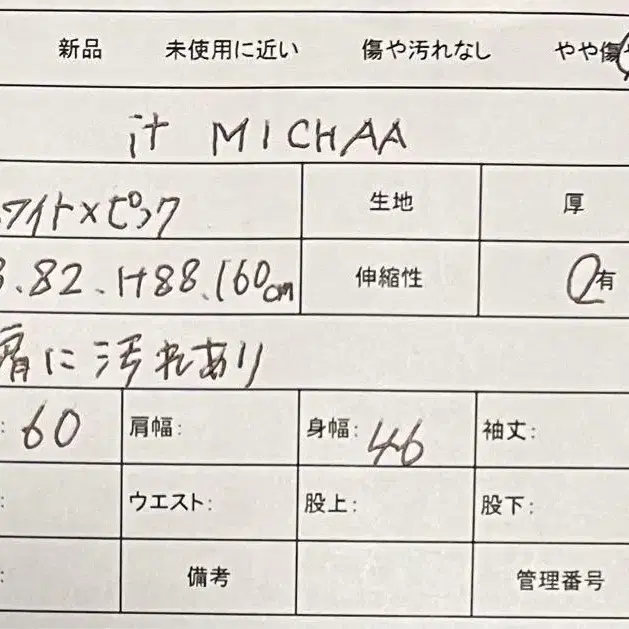 新品 未使用に近い 傷や汚れなし やや傷
it MICHAA
ワイト×ピンク 生地 厚
.82.H88.160cm 伸縮性 有
肩に汚れあり
: 60 肩幅: 身幅: 46 袖丈:
: ウエスト: 股上: 股下:
: 備考 管理番号